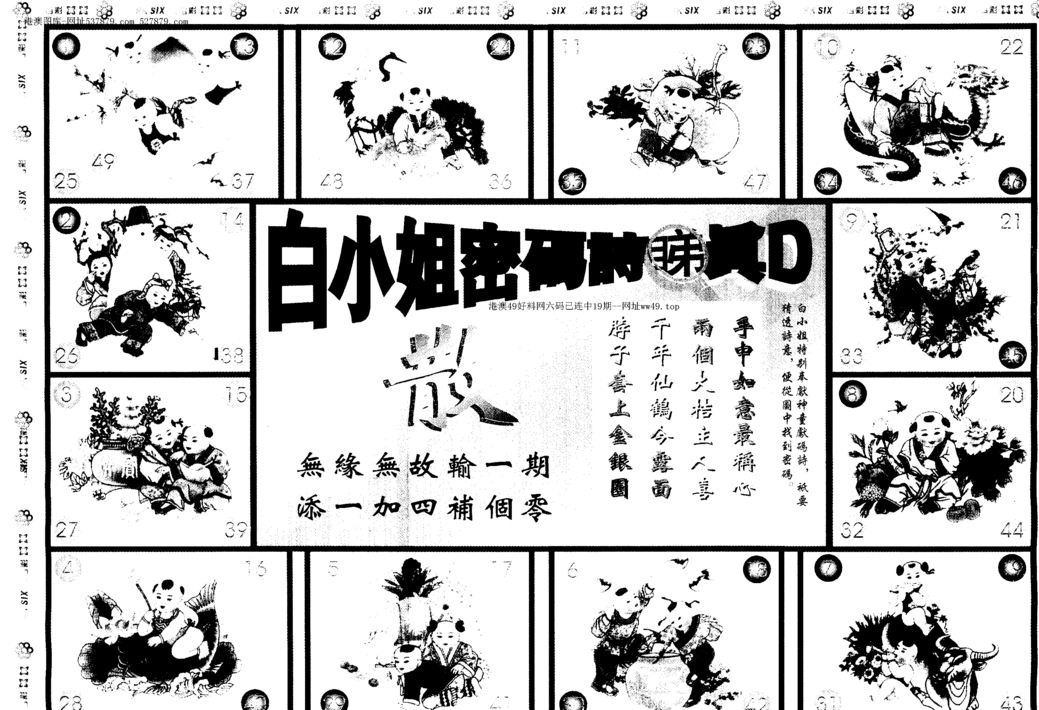 港澳图库-网址537879.com 537879.com
SIX
1 13
25 49 37
12 24
48 36
11 23
35 47
10 22
34 46
2 14
26 38
3 15
27 39
9 21
33 45
8 20
32 44
4 16
28
5 17
41
6 18
42
7 19
31 43
白小姐密碼詩
港澳49好料网六码已连中19期—网址ww49.top
白小姐特别奉獻神童獻碼詩,祇要
精透詩意,便從圖中找到密碼。
手中如意最稱心
兩個大桔主人喜
千年仙鶴今露面
脖子套上金銀圈
散
無緣無故輸一期
添一加四補個零